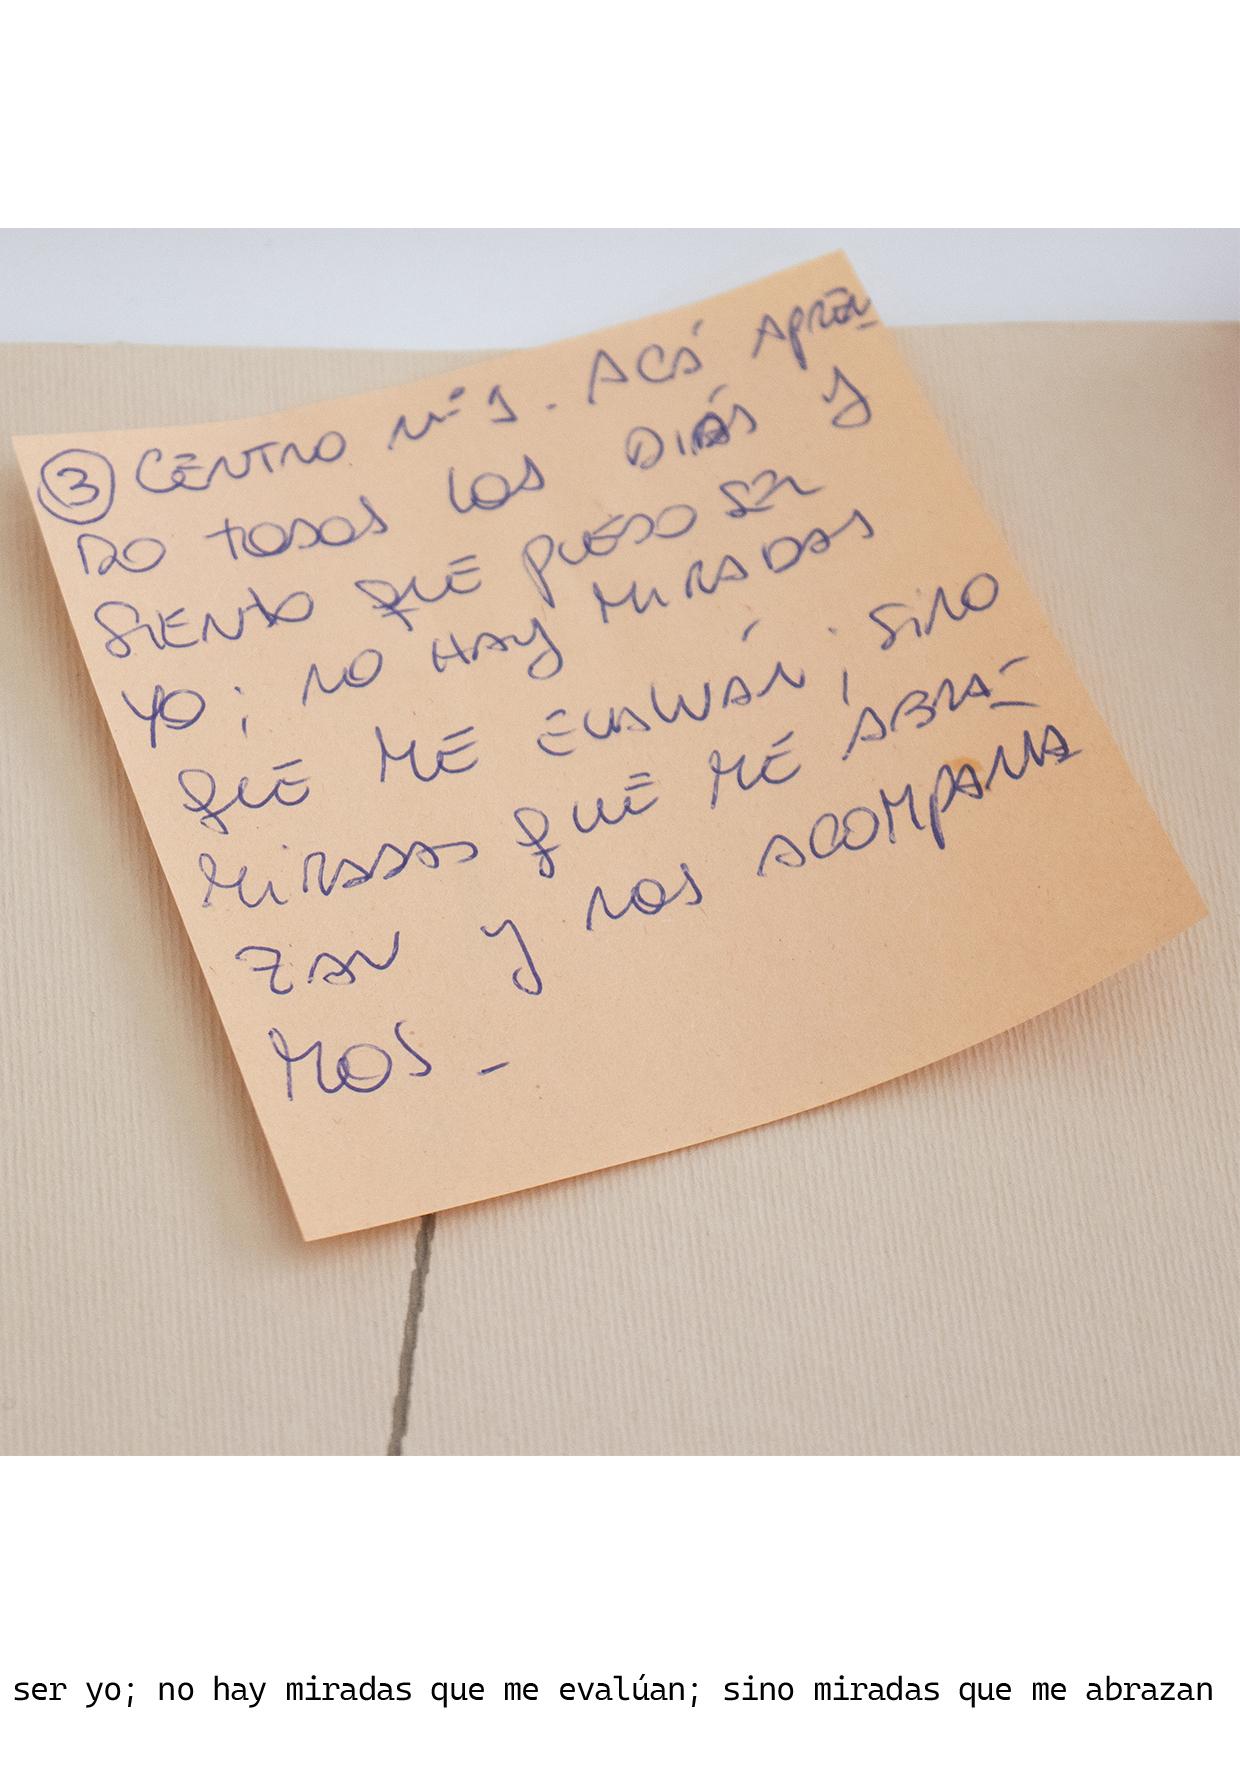 ③ CENTRO Nº 1. ACÁ APREN-
DO TODOS LOS DÍAS Y
SIENTO QUE PUEDO SER
YO; NO HAY MIRADAS
QUE ME EVALUÁN; SINO
MIRADAS QUE ME ABRA-
ZAN Y NOS ACOMPAÑA
MOS -
ser yo; no hay miradas que me evalúan; sino miradas que me abrazan